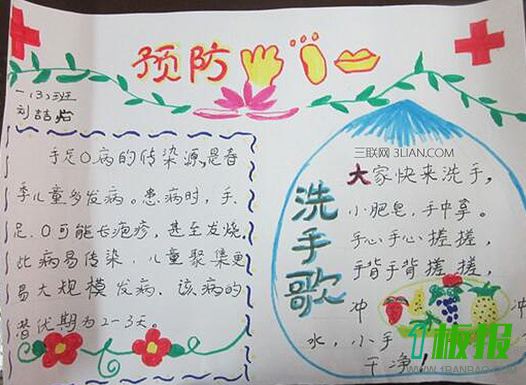 预防
一（3）班
刘喆怡
手足O病的传染源,是春
季儿童多发病。患病时，手、
足、O可能长疱疹，甚至发烧。
此病易传染，儿童聚集更
易大规模发病，该病的
潜伏期为2-3天。
洗手歌
大家快来洗手，
小肥皂，手中拿。
手心手心搓搓，
手背手背搓搓，
冲 冲
水，小手
干净！
三联网 3LIAN.COM
1板报
WWW.1BANBAO.COM